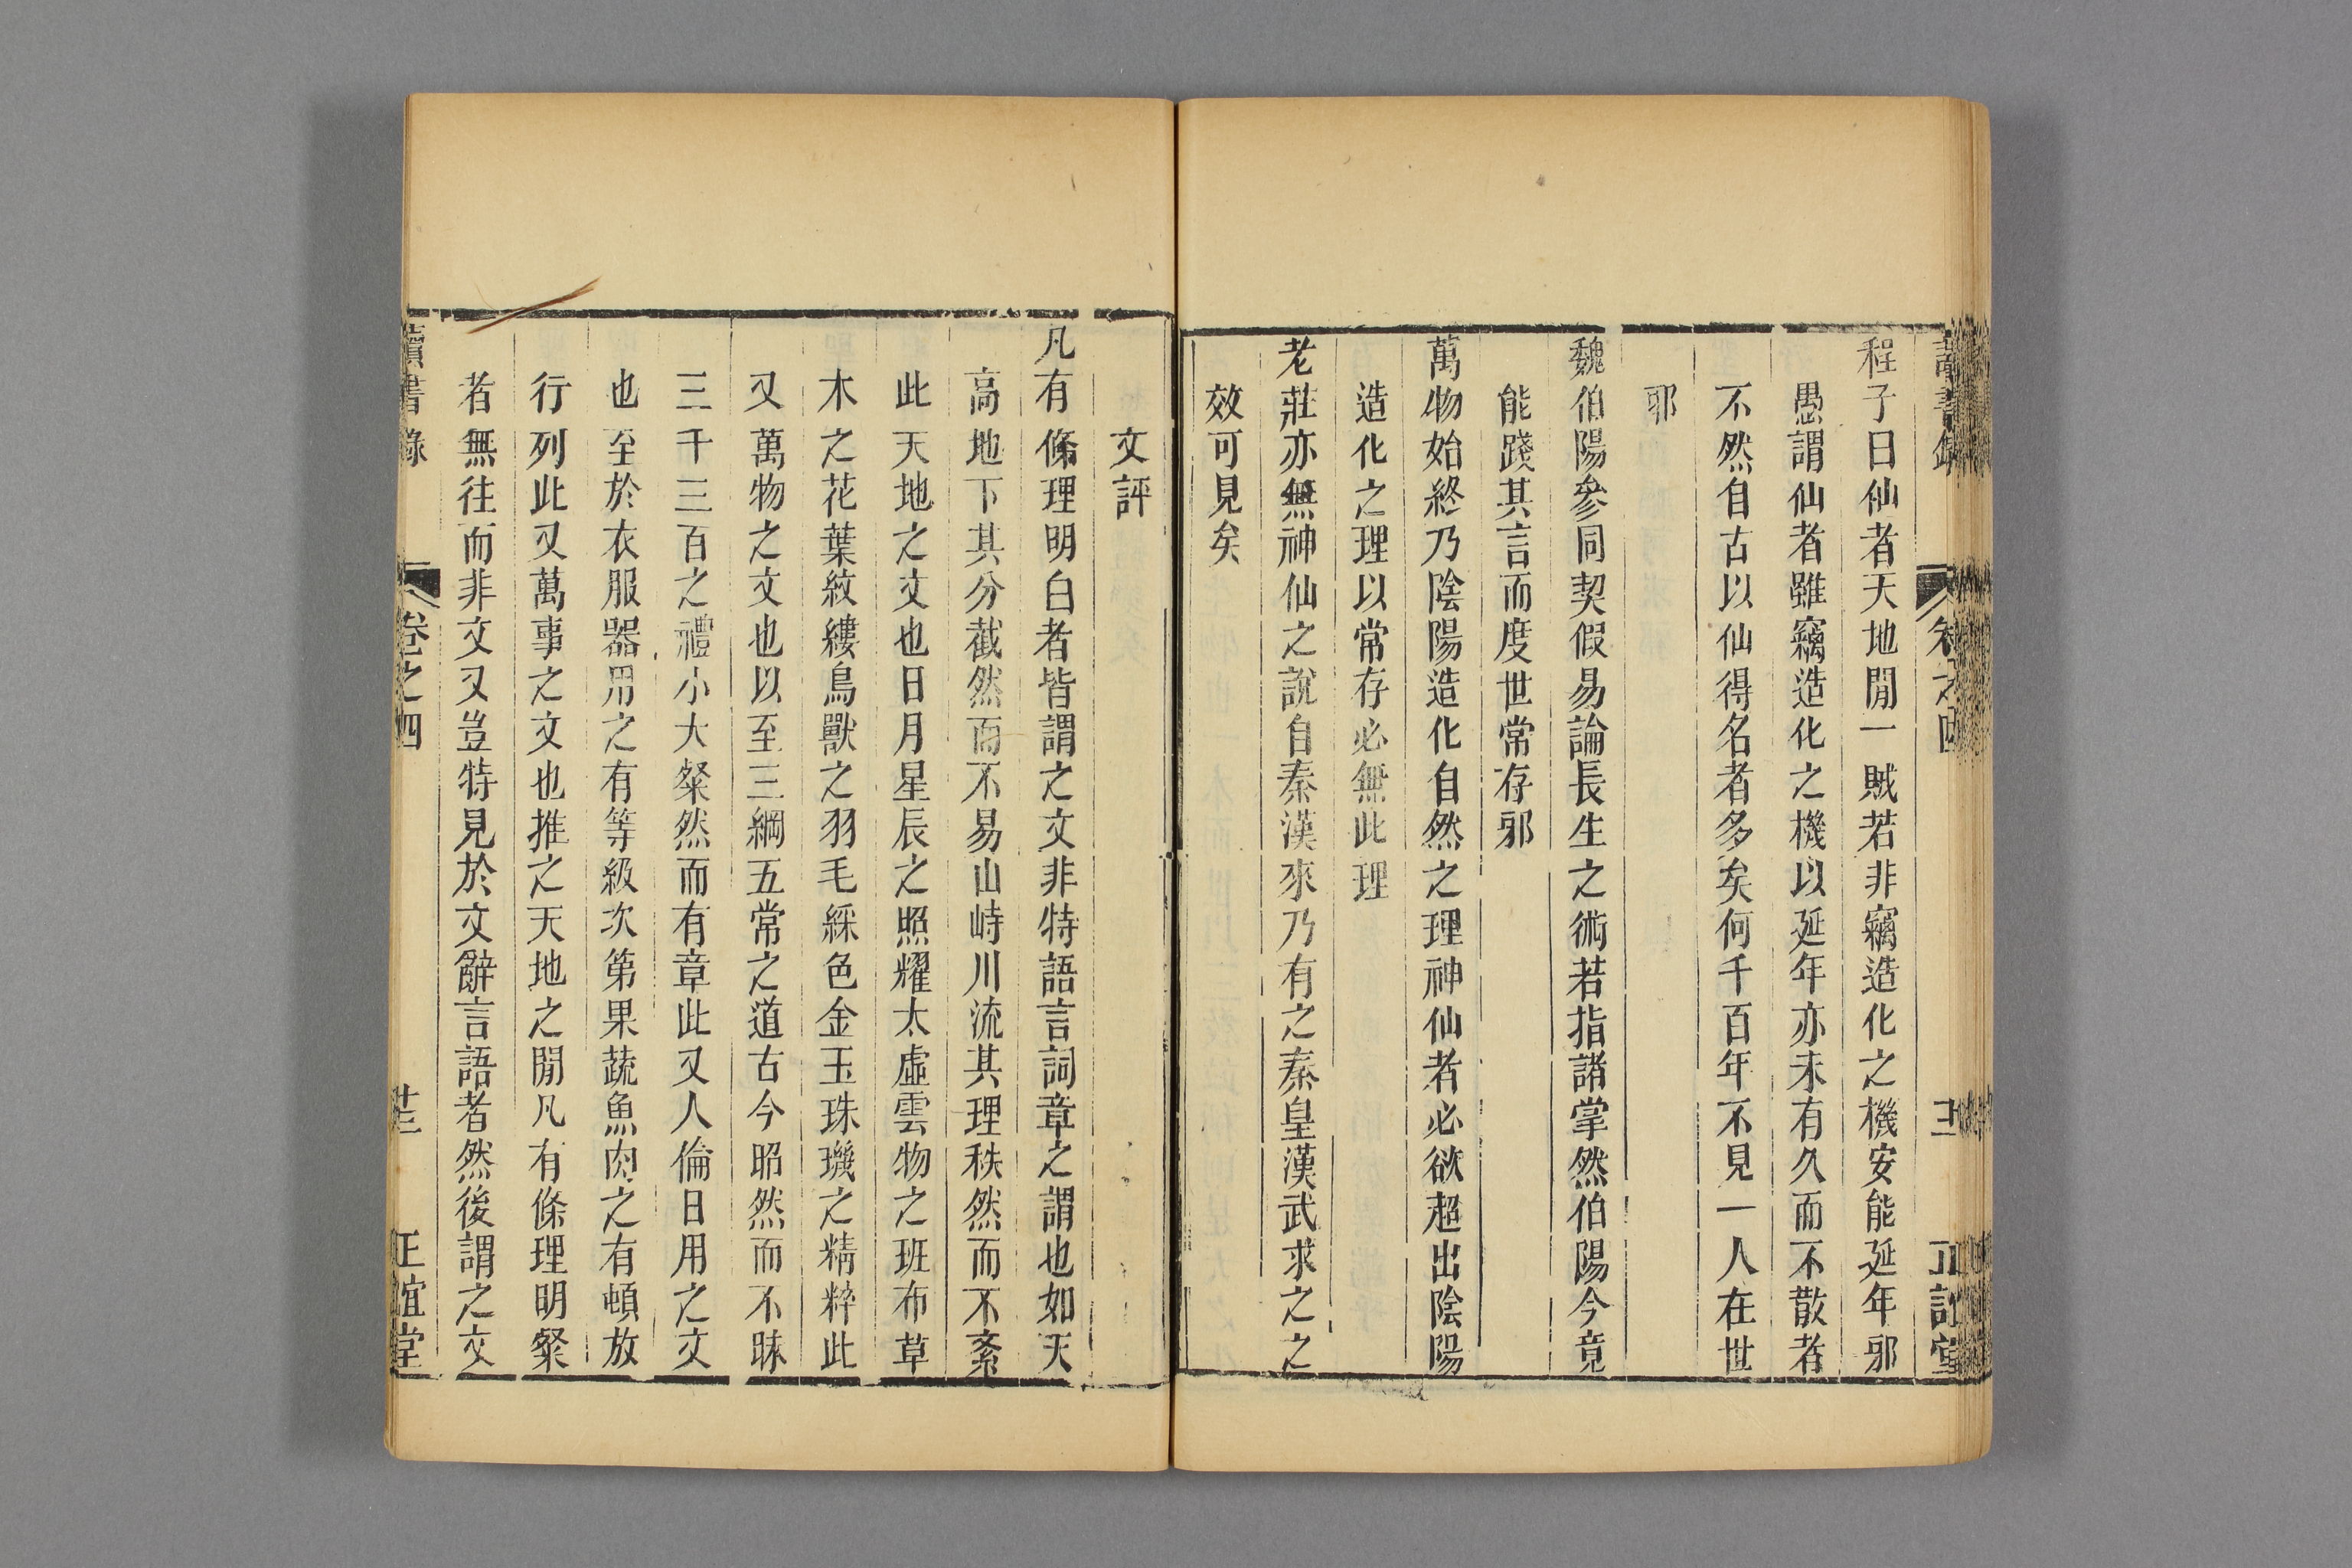 程子曰仙者天地閒一賊若非竊造化之機安能延年邪
愚謂仙者雖竊造化之機以延年亦未有久而不散者
不然自古以仙得名者多矣何千百年不見一人在世
耶
魏伯陽參同契假易論長生之術若指諸掌然伯陽今竟
能踐其言而度世常存邪
萬物始終乃陰陽造化自然之理神仙者必欲超出陰陽
造化之理以常存必無此理
老莊亦無神仙之說自秦漢來乃有之秦皇漢武求之之
效可見矣
文評
凡有條理明白者皆謂之文非特語言詞章之謂也如天
高地下其分截然而不易山峙川流其理秩然而不紊
此天地之文也日月星辰之照耀太虛雲物之班布草
木之花葉紋縷鳥獸之羽毛綵色金玉珠璣之精粹此
又萬物之文也以至三綱五常之道古今昭然而不昧
三千三百之禮小大粲然而有章此又人倫日用之文
也至於衣服器用之有等級次第果蔬魚肉之有頓放
行列此又萬事之文也推之天地之閒凡有條理明粲
者無往而非文又豈特見於文辭言語者然後謂之文
讀書錄 卷之四 正誼堂